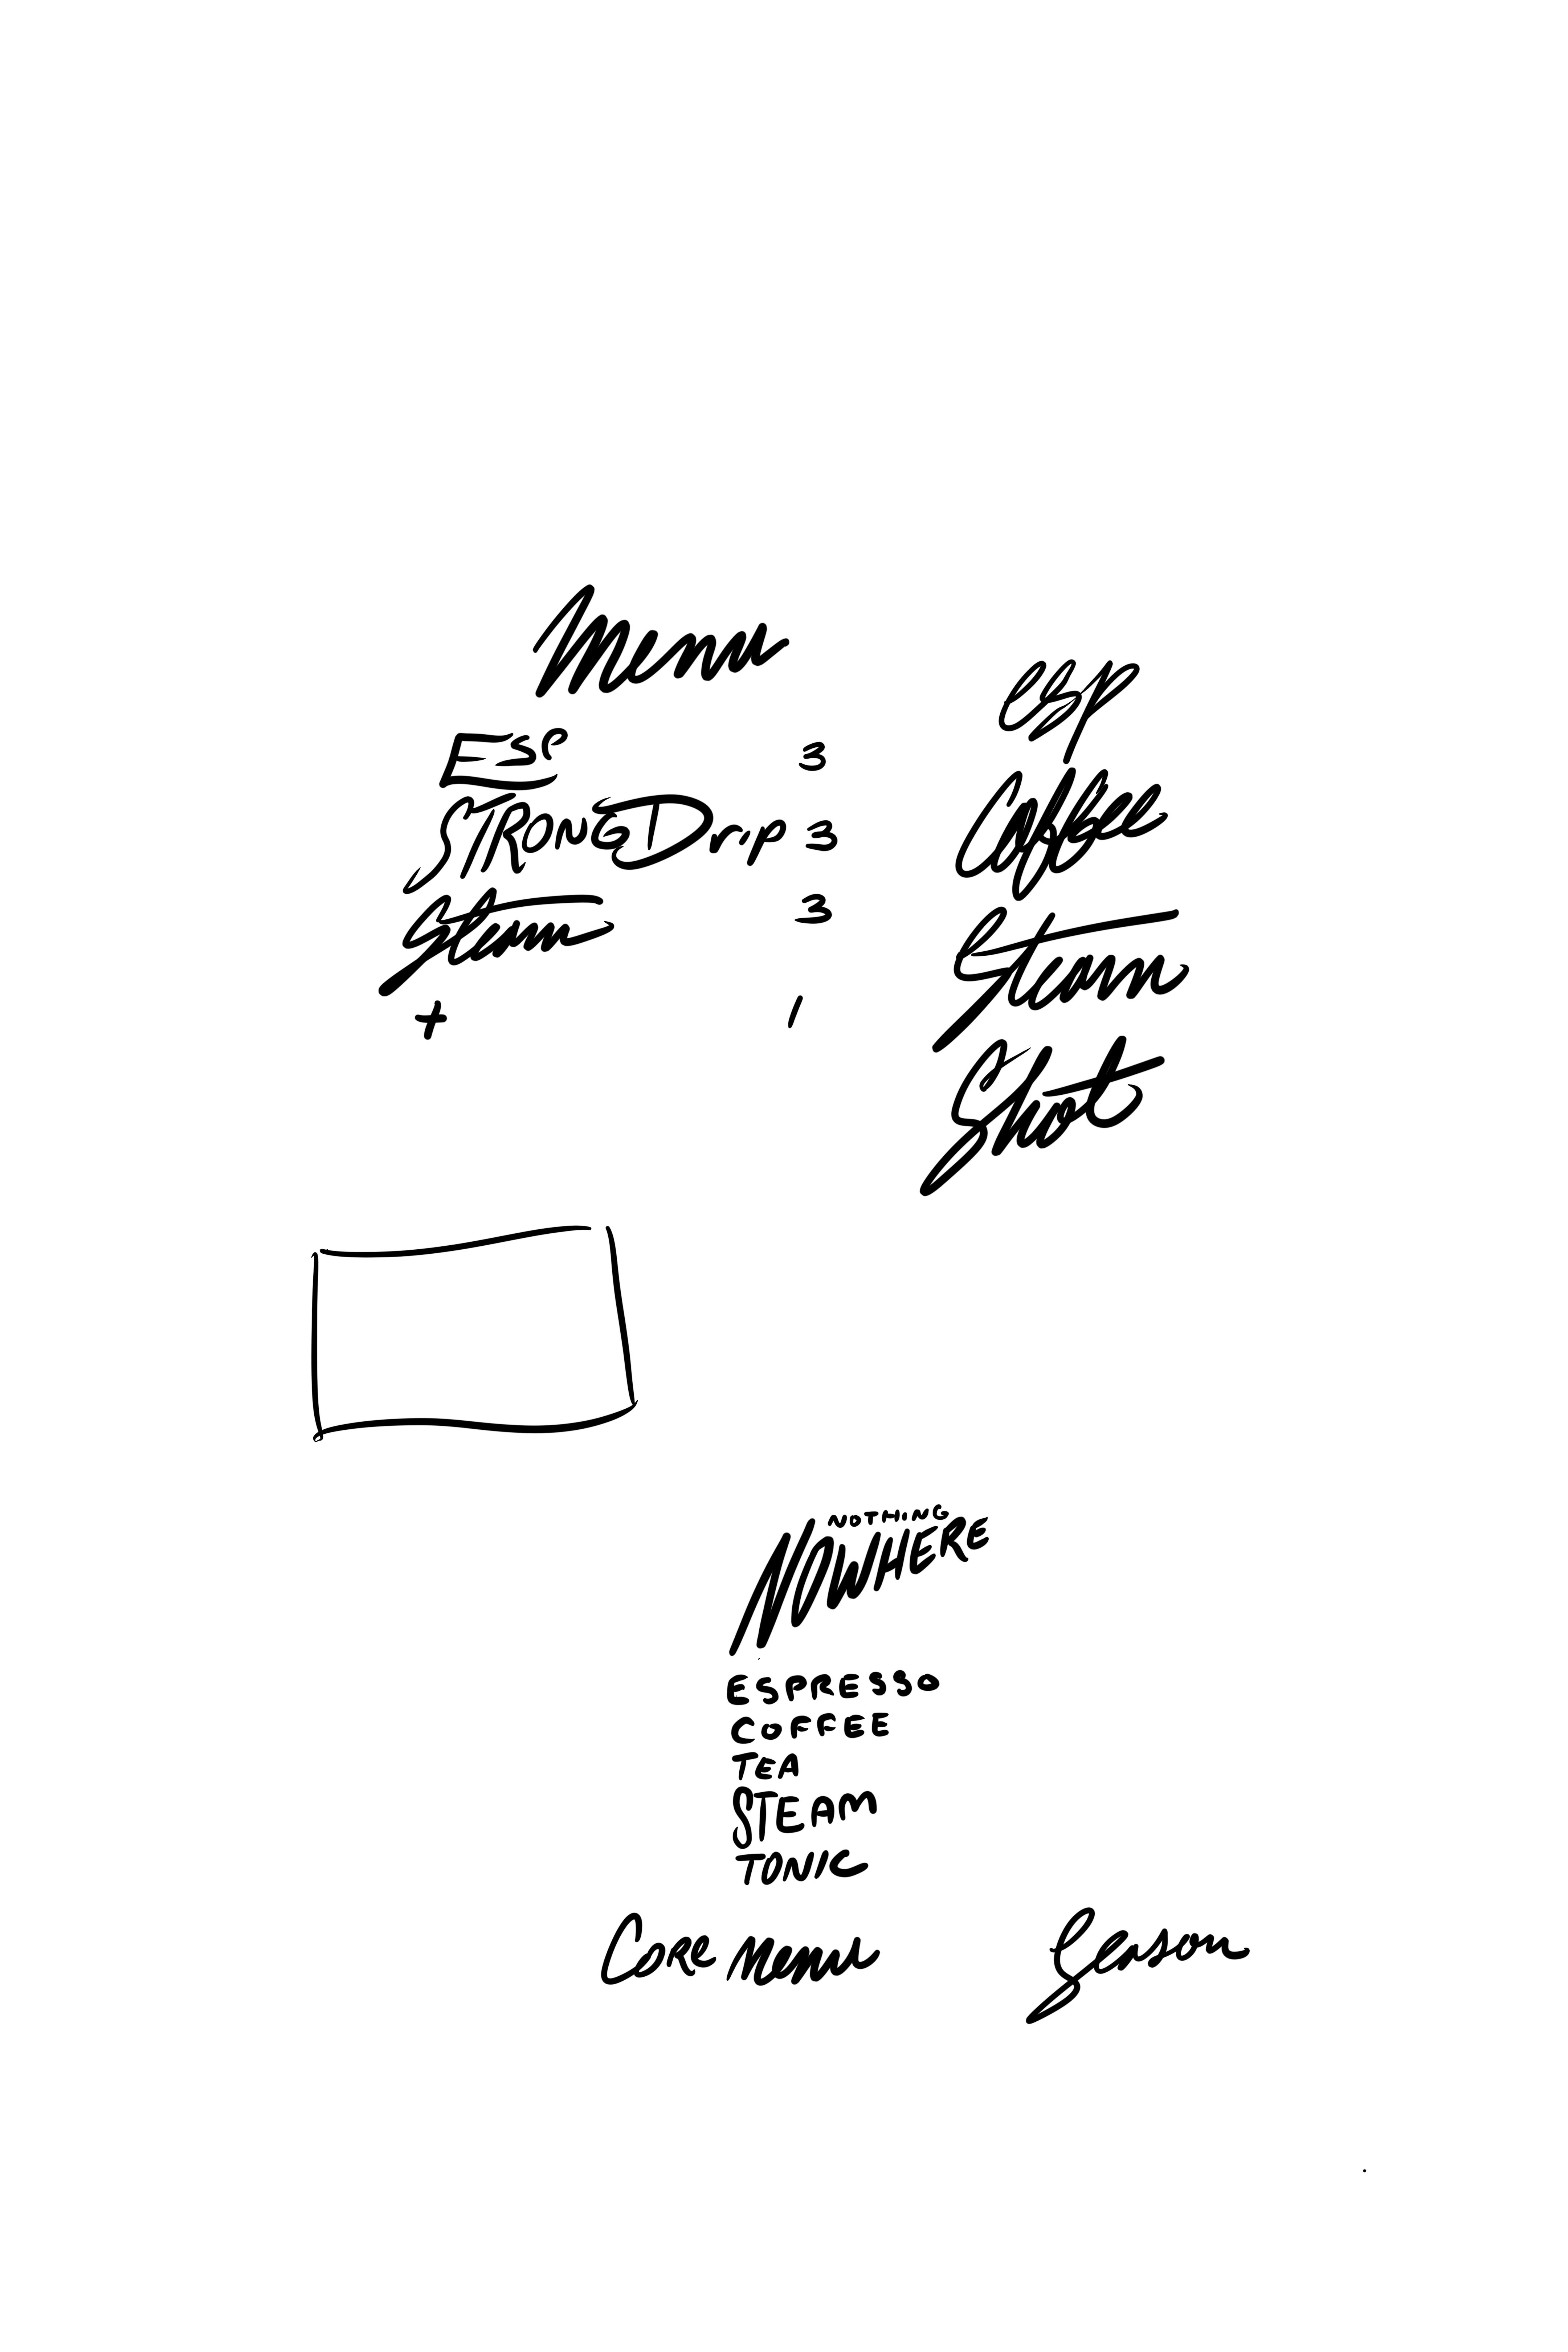 Menu
Esp 3
Drip 3
Steam 3
+ 1
Esp
Coffee
Steam
Shot
NOTHING
NOWHERE
ESPRESSO
COFFEE
TEA
STEAM
TONIC
Core Menu
Season